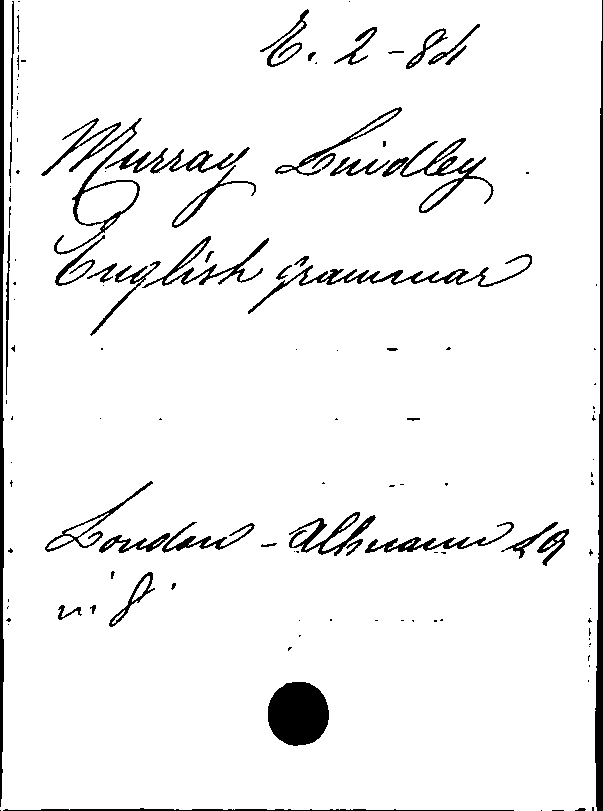 E. 2-84
Murray Lindley
English grammar
London - Allmann
in 8.